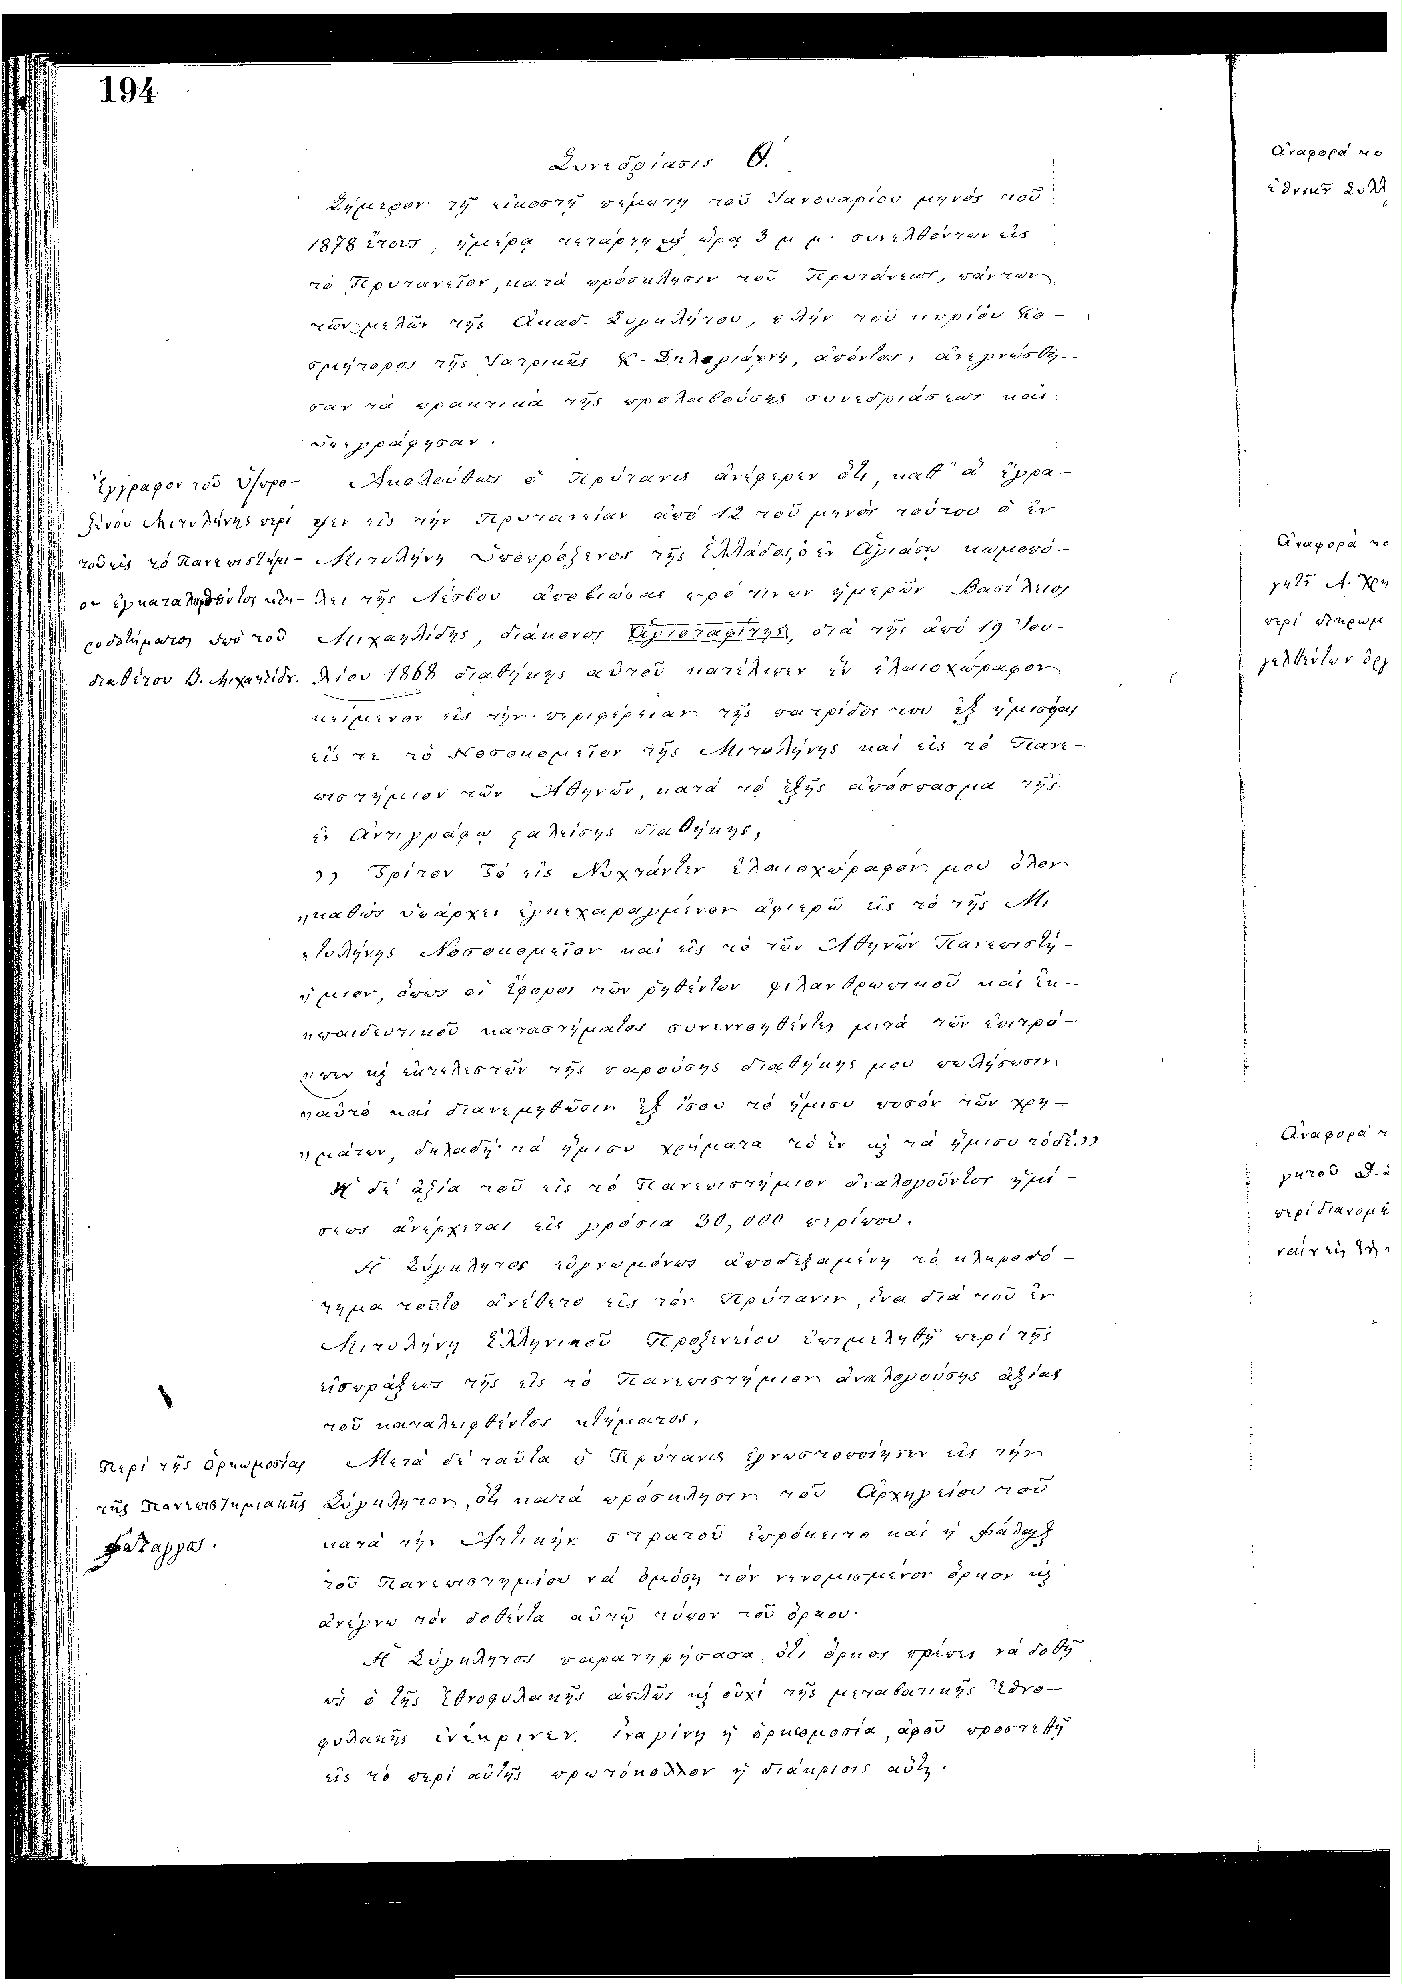 194
Συνεδρίασις Θ΄.
Σήμερον τῇ εἰκοστῇ πέμπτῃ τοῦ Ἰανουαρίου μηνός τοῦ
1878 ἔτους, ἡμέρᾳ τετάρτῃ κϳ ὥρᾳ 3 μ μ. συνελθόντων εἰς
τό Πρυτανεῖον, κατά πρόσκλησιν τοῦ Πρυτάνεως, πάντων
τῶν μελῶν τῆς Ἀκαδ. Συγκλήτου, πλήν τοῦ κυρίου Κο-
σμήτορος τῆς Ἰατρικῆς Κ. Δηλιγιάννη, ἀπόντος, ἀνεγνώσθη-
σαν τά πρακτικά τῆς προλαβούσης συνεδριάσεως καί
ὑπεγράφησαν.
Ἔγγραφον τοῦ Ὑποπρο-
ξένου Μιτυλήνης περί
τοῦ εἰς τό Πανεπιστήμι-
ον ἐγκαταλειφθέντος κλη-
ροδοτήματος ὑπό τοῦ
διαθέτου Β. Μιχαηλίδη.
Ἀκολούθως ὁ Πρύτανις ἀνέφερεν ὅτι, καθ' ἅ ἔγρα-
ψεν εἰς τήν Πρυτανείαν ἀπό 12 τοῦ μηνός τούτου ὁ ἐν
Μιτυλήνῃ Ὑποπρόξενος τῆς Ἑλλάδος, ὁ ἐν Ἀγιάσῳ κωμοπό-
λει τῆς Λέσβου ἀποβιώσας πρό τινων ἡμερῶν Βασίλειος
Μιχαηλίδης, διάκονος Ἁγιοταφίτης, διά τῆς ἀπό 19 Ἰου-
λίου 1868 διαθήκης αὐτοῦ κατέλιπεν ἕν ἐλαιοχώραφον
κείμενον εἰς τήν περιφέρειαν τῆς πατρίδος του ἐξ ἡμισείας
εἴς τε τό Νοσοκομεῖον τῆς Μιτυλήνης καί εἰς τό Πανε-
πιστήμιον τῶν Ἀθηνῶν, κατά τό ἑξῆς ἀπόσπασμα τῆς
ἐν Ἀντιγράφῳ σταλείσης διαθήκης,
,, Τρίτον Τό εἰς Νυχτάντεν ἐλαιοχώραφόν μου ὅλον
,,καθώς ὑπάρχει ἐγκεχαραγμένον ἀφιερῶ εἰς τό τῆς Μι
,,τυλήνης Νοσοκομεῖον καί εἰς τό τῶν Ἀθηνῶν Πανεπιστή-
,,μιον, ὅπως οἱ Ἔφοροι τῶν ῥηθέντων φιλανθρωπικοῦ καί ἐκ-
,,παιδευτικοῦ καταστήματος συνεννοηθέντες μετά τῶν ἐπιτρό-
,,πων κϳ ἐκτελεστῶν τῆς παρούσης διαθήκης μου πωλήσωσιν
,,αὐτό καί διανεμηθῶσιν ἐξ ἴσου τό ἥμισυ ποσόν τῶν χρη-
,,μάτων, δηλαδή τά ἥμισυ χρήματα τό ἕν κϳ τά ἥμισυ τό δέ.,,
Ἡ δέ ἀξία τοῦ εἰς τό Πανεπιστήμιον ἀναλογοῦντος ἡμί-
σεως ἀνέρχεται εἰς γρόσια 30,000 περίπου.
Ἡ Σύγκλητος εὐγνωμόνως ἀποδεξαμένη τό κληροδό-
τημα τοῦτο ἀνέθετο εἰς τόν Πρύτανιν, ἵνα διά τοῦ ἐν
Μιτυλήνῃ Ἑλληνικοῦ Προξενείου ἐπιμεληθῇ περί τῆς
εἰσπράξεως τῆς εἰς τό Πανεπιστήμιον ἀναλογούσης ἀξίας
τοῦ καταλειφθέντος κτήματος.
Περί τῆς ὁρκωμοσίας
τῆς Πανεπιστημιακῆς
Φάλαγγος.
Μετά δέ ταῦτα ὁ Πρύτανις ἐγνωστοποίησεν εἰς τήν
Σύγκλητον, ὅτι κατά πρόσκλησιν τοῦ Ἀρχηγείου τοῦ
κατά τήν Ἀττικήν στρατοῦ ἐπρόκειτο καί ἡ Φάλαγξ
τοῦ Πανεπιστημίου νά ὀμόσῃ τόν νενομισμένον ὅρκον κϳ
ἀνέγνω τόν δοθέντα αὐτῷ τύπον τοῦ ὅρκου.
Ἡ Σύγκλητος παρατηρήσασα, ὅτι ὅρκος πρέπει νά δοθῇ
ὡς ὁ τῆς Ἐθνοφυλακῆς ἁπλῶς κϳ οὐχί τῆς μεταβατικῆς Ἐθνο-
φυλακῆς ἐνέκρινεν ἵνα γίνῃ ἡ ὁρκωμοσία, ἀφοῦ προστεθῇ
εἰς τό περί αὐτῆς πρωτόκολλον ἡ διάκρισις αὕτη.
Ἀναφορά
Ἐθνικῆ Συλλ
Ἀναφορά
γητῆ Α. Χρη
περί
Ἀναφορά τ
γητοῦ
περί διανομῆ